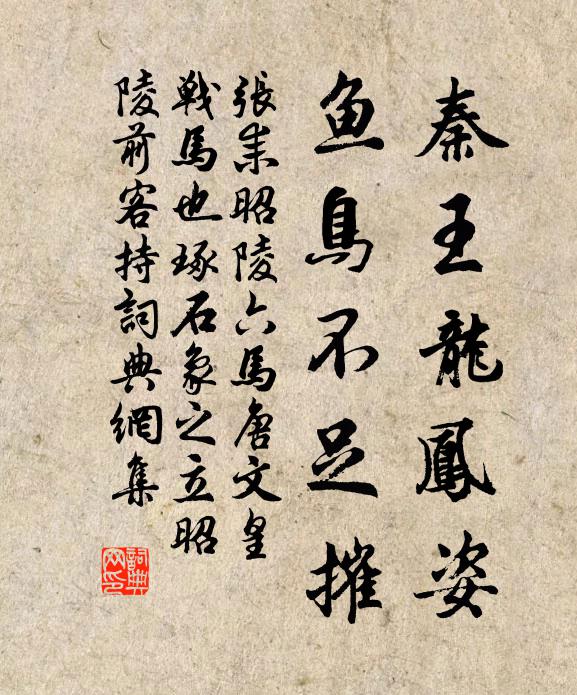 秦王龍鳳姿
魚鳥不足摧
張耒昭陵六馬唐文皇
戰馬也琢石象之立昭
陵前客持詞典網集
詞典网印